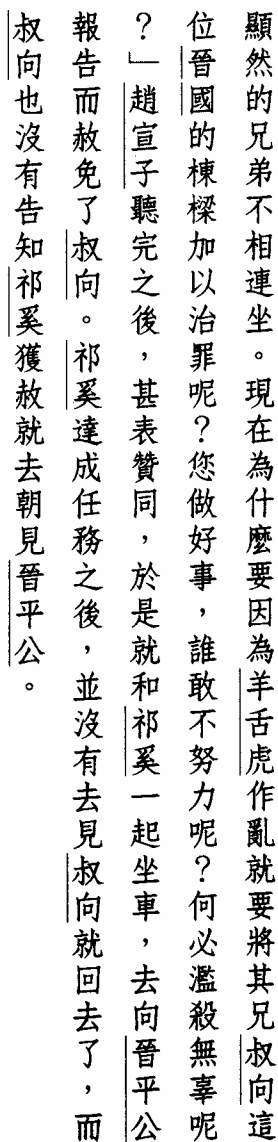 顯然的兄弟不相連坐。現在為什麼要因為羊舌虎作亂就要將其兄叔向這
位晉國的棟樑加以治罪呢？您做好事，誰敢不努力呢？何必濫殺無辜呢
？」趙宣子聽完之後，甚表贊同，於是就和祁奚一起坐車，去向晉平公
報告而赦免了叔向。祁奚達成任務之後，並沒有去見叔向就回去了，而
叔向也沒有告知祁奚獲赦就去朝見晉平公。